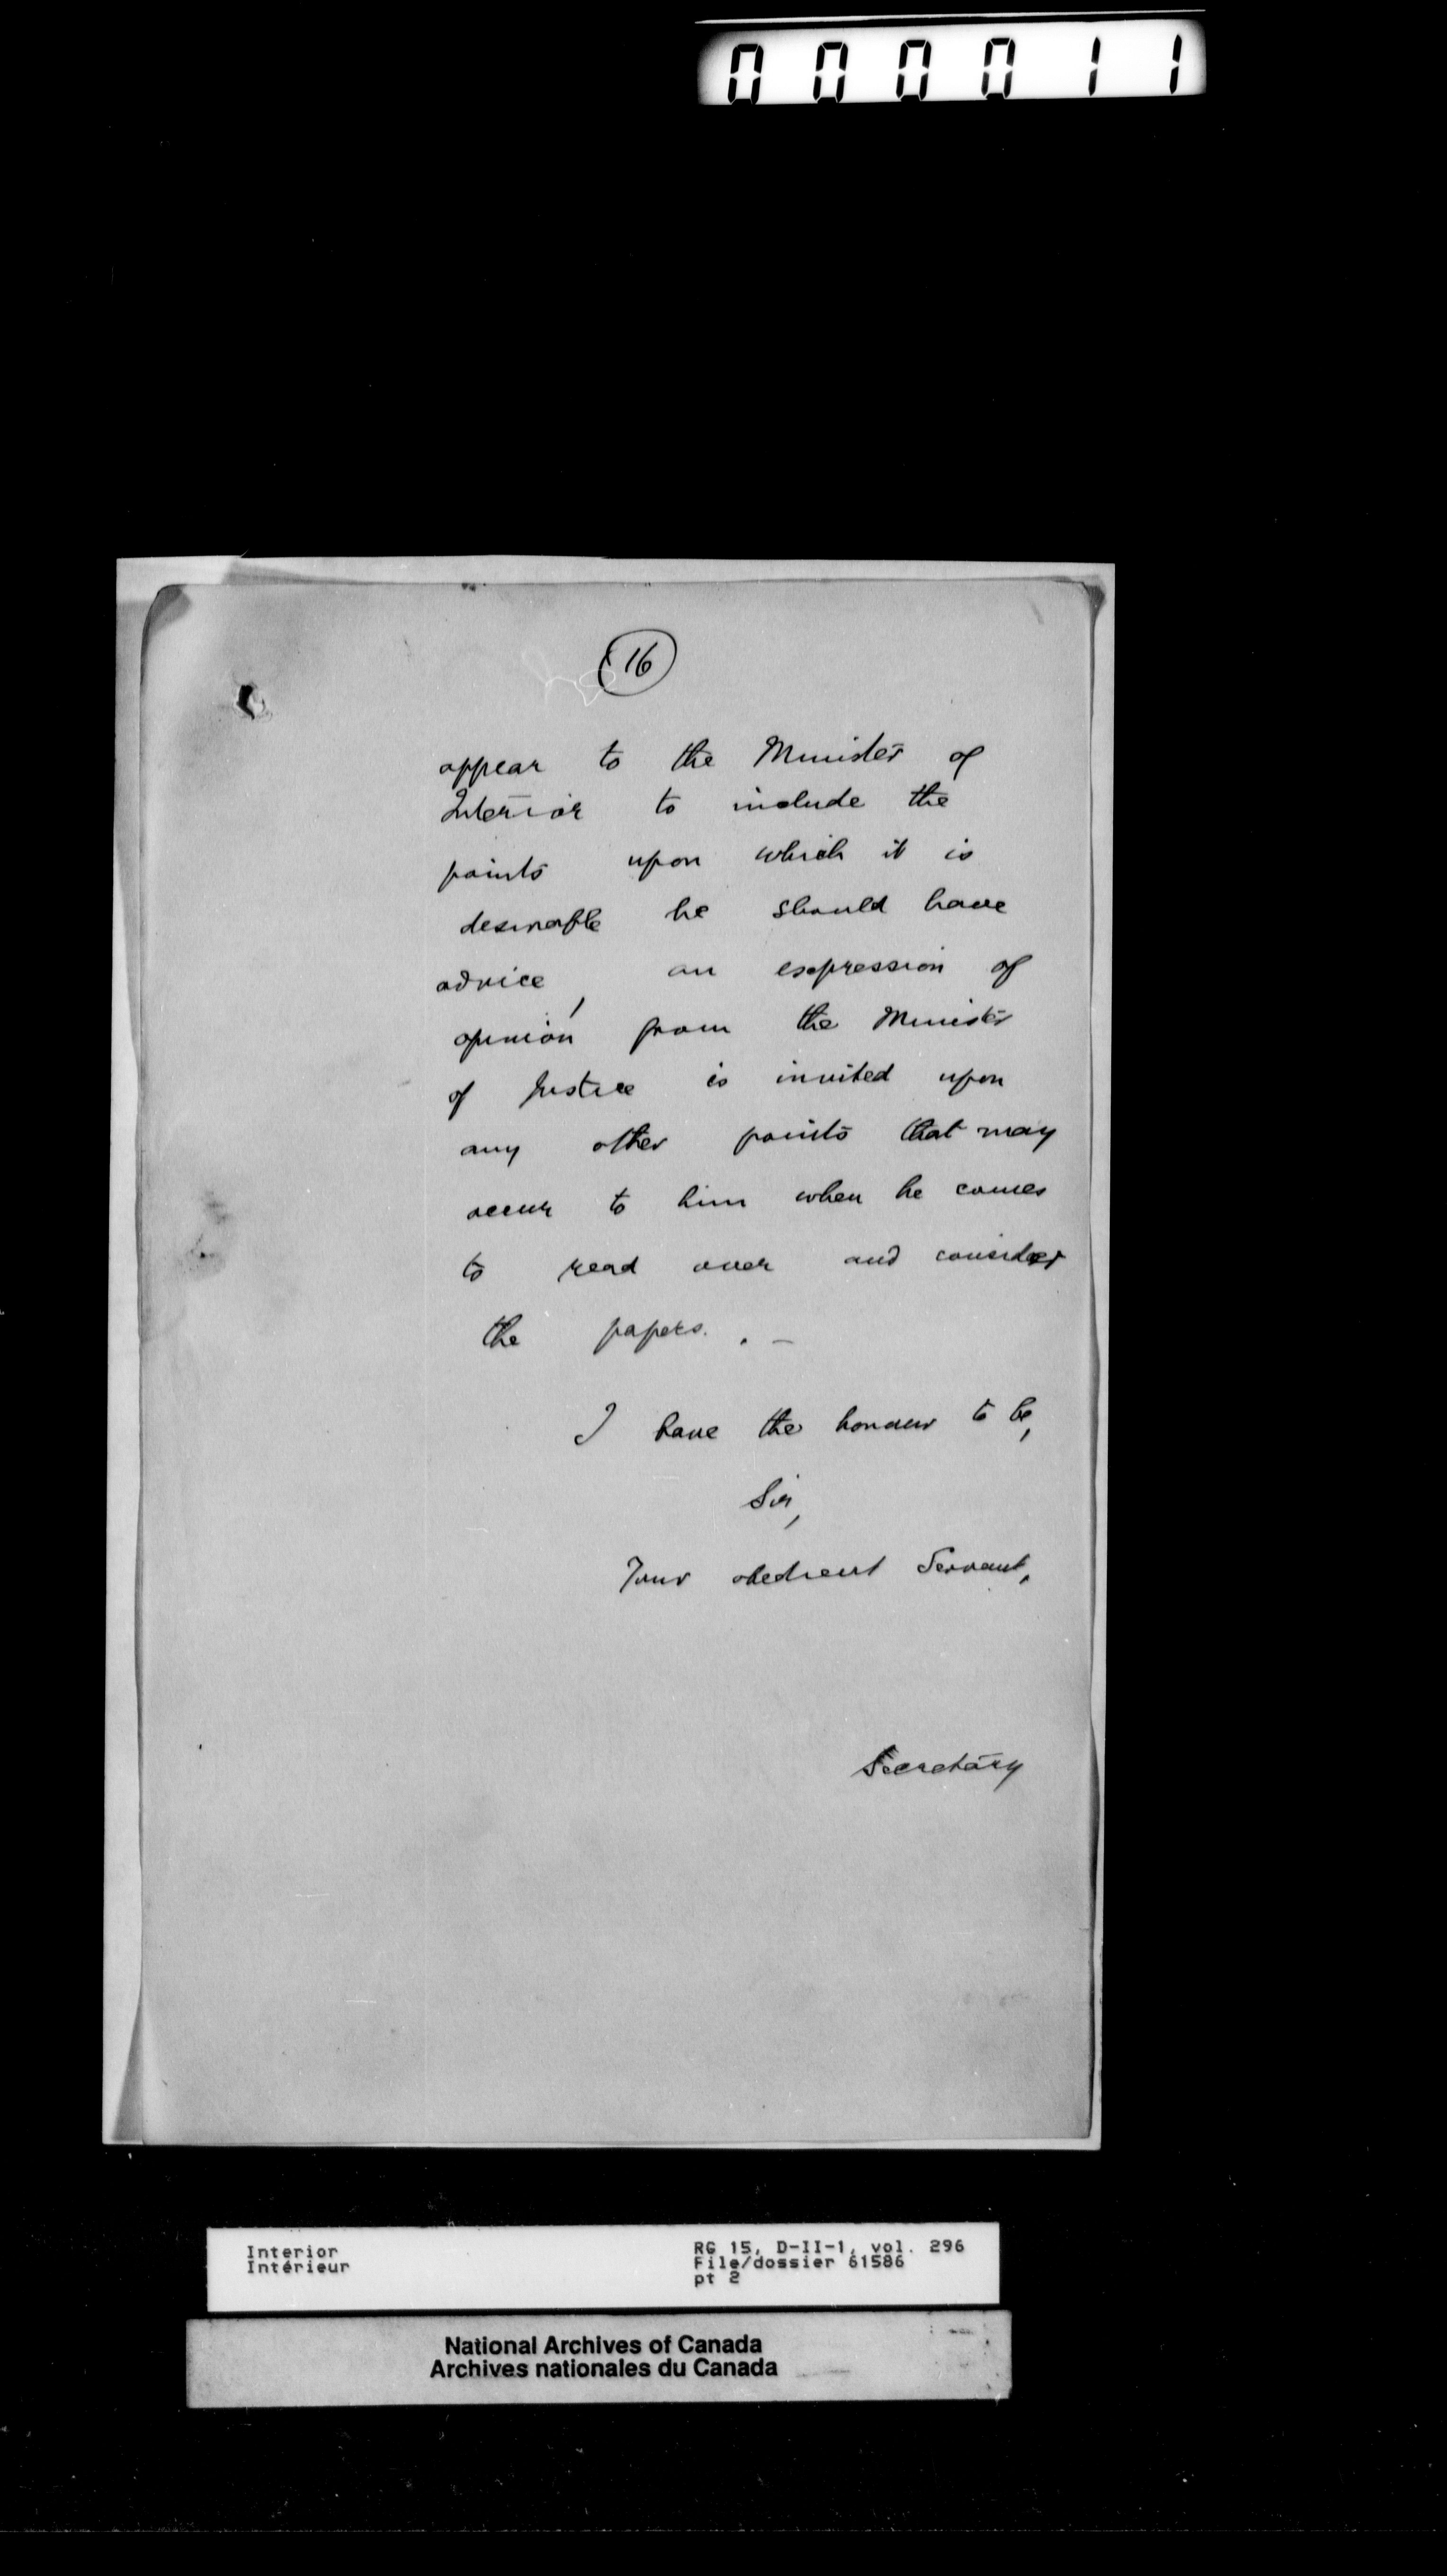 000011
16
appear to the Minister of
Interior to include the
points upon which it is
desirable he should have
advice, an expression of
opinion from the Minister
of Justice is invited upon
any other points that may
occur to him when he comes
to read over and consider
the papers. . —
I have the honour to be,
Sir,
Your obedient Servant,
Secretary
Interior
Intérieur
RG 15, D-II-1, vol. 296
File/dossier 61586
pt 2
National Archives of Canada
Archives nationales du Canada